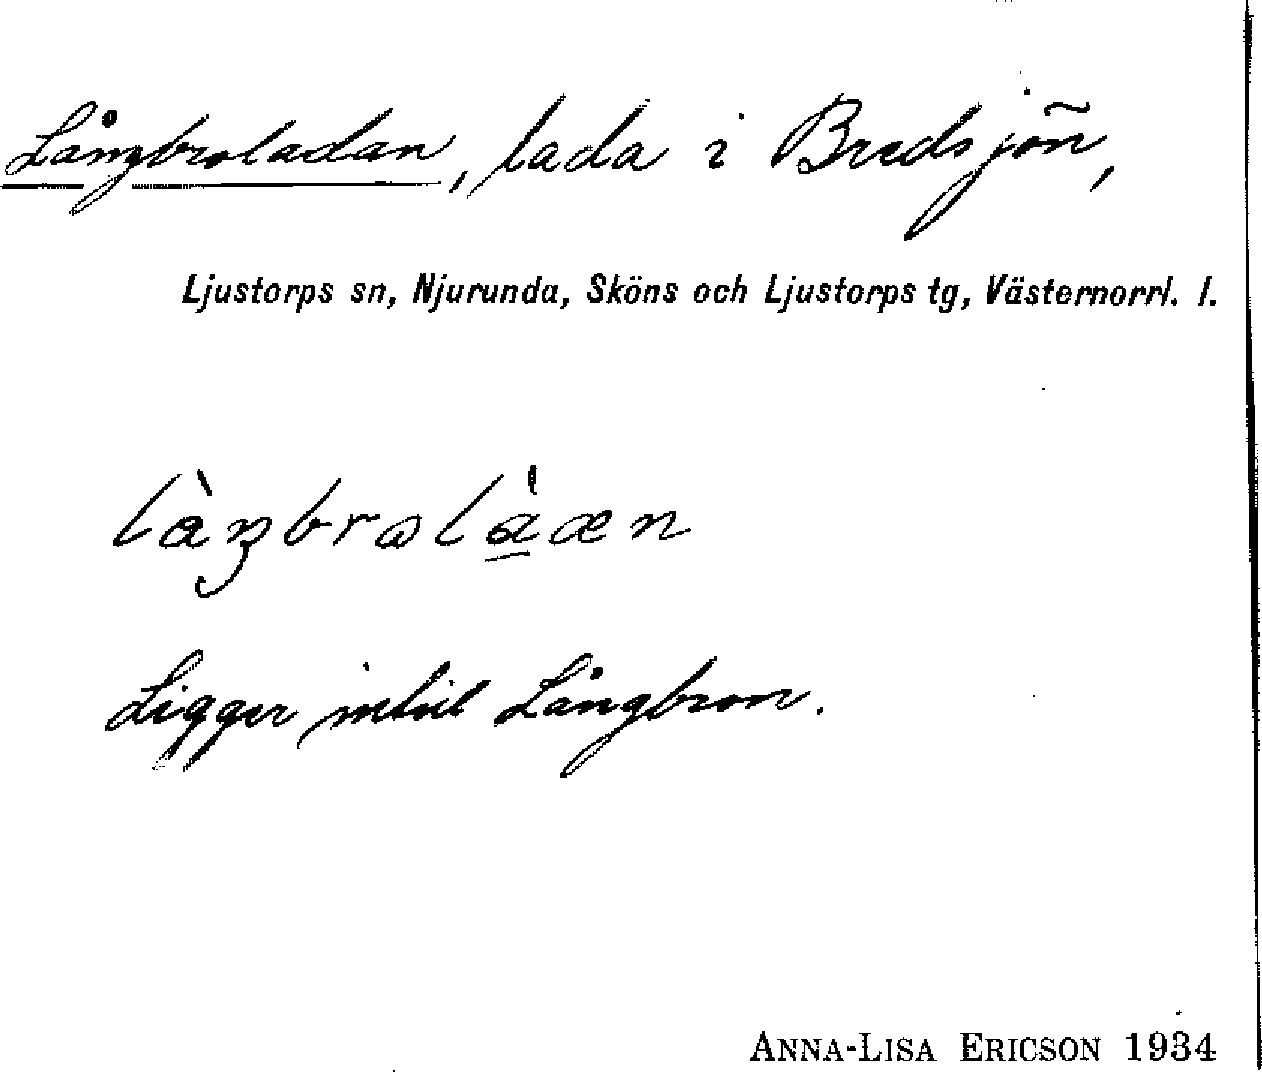 Långbroladan, lada i Bredsjön,
Ljustorps sn, Njurunda, Sköns och Ljustorps tg, Västernorrl. l.
Ligger intill Långbron.
ANNA-LISA ERICSON 1934